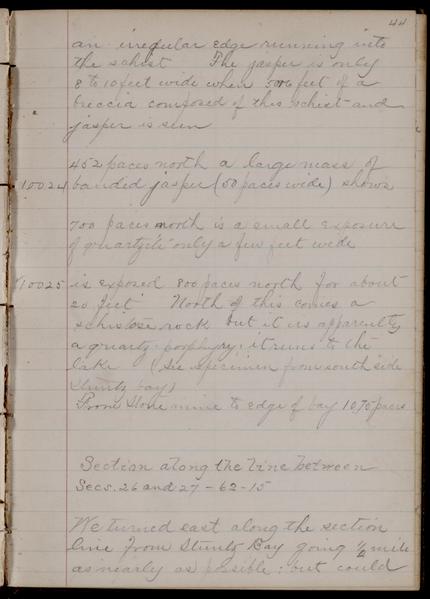 44
an irregular edge running into
the schist The jasper is only
8 to 10 feet wide when 5 or 6 feet of a
breccia composed of this schist and
jasper is seen
452 paces north a large mass of
10024 banded jasper (50 paces wide) shows
700 paces north is a small exposure
of quartzite only a few feet wide
10025 is exposed 800 paces north for about
20 feet North of this comes a
schistose rock but it is apparently
a quartz-porphyry; it runs to the
lake (See specimen from south side
Stuntz bay)
From Stone mine to edge of bay 1075 paces
Section along the line between
Secs. 26 and 27-62-15
We turned east along the section
line from Stuntz Bay going 1/2 mile
as nearly as possible: but could